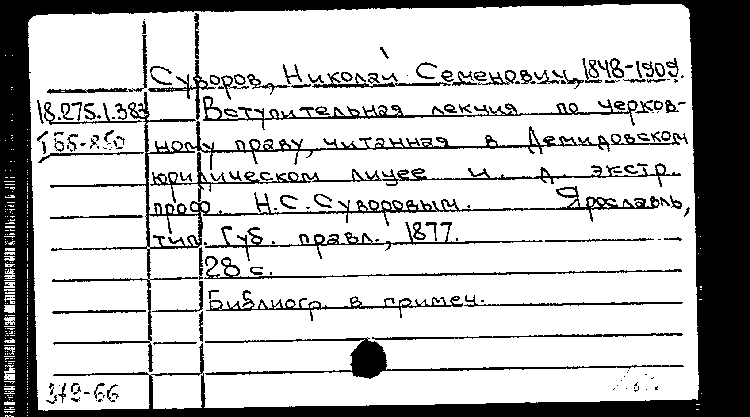 Суворов, Николай Семенович, 1848-1909.
18.275.1.383 Вступительная лекция по церков-
ному праву, читанная в Демидовском
юридическом лицее и. д. экстр.
проф. Н.С.Суворовым. Ярославль,
тип. Губ. правл., 1877.
28 с.
Библиогр. в примеч.